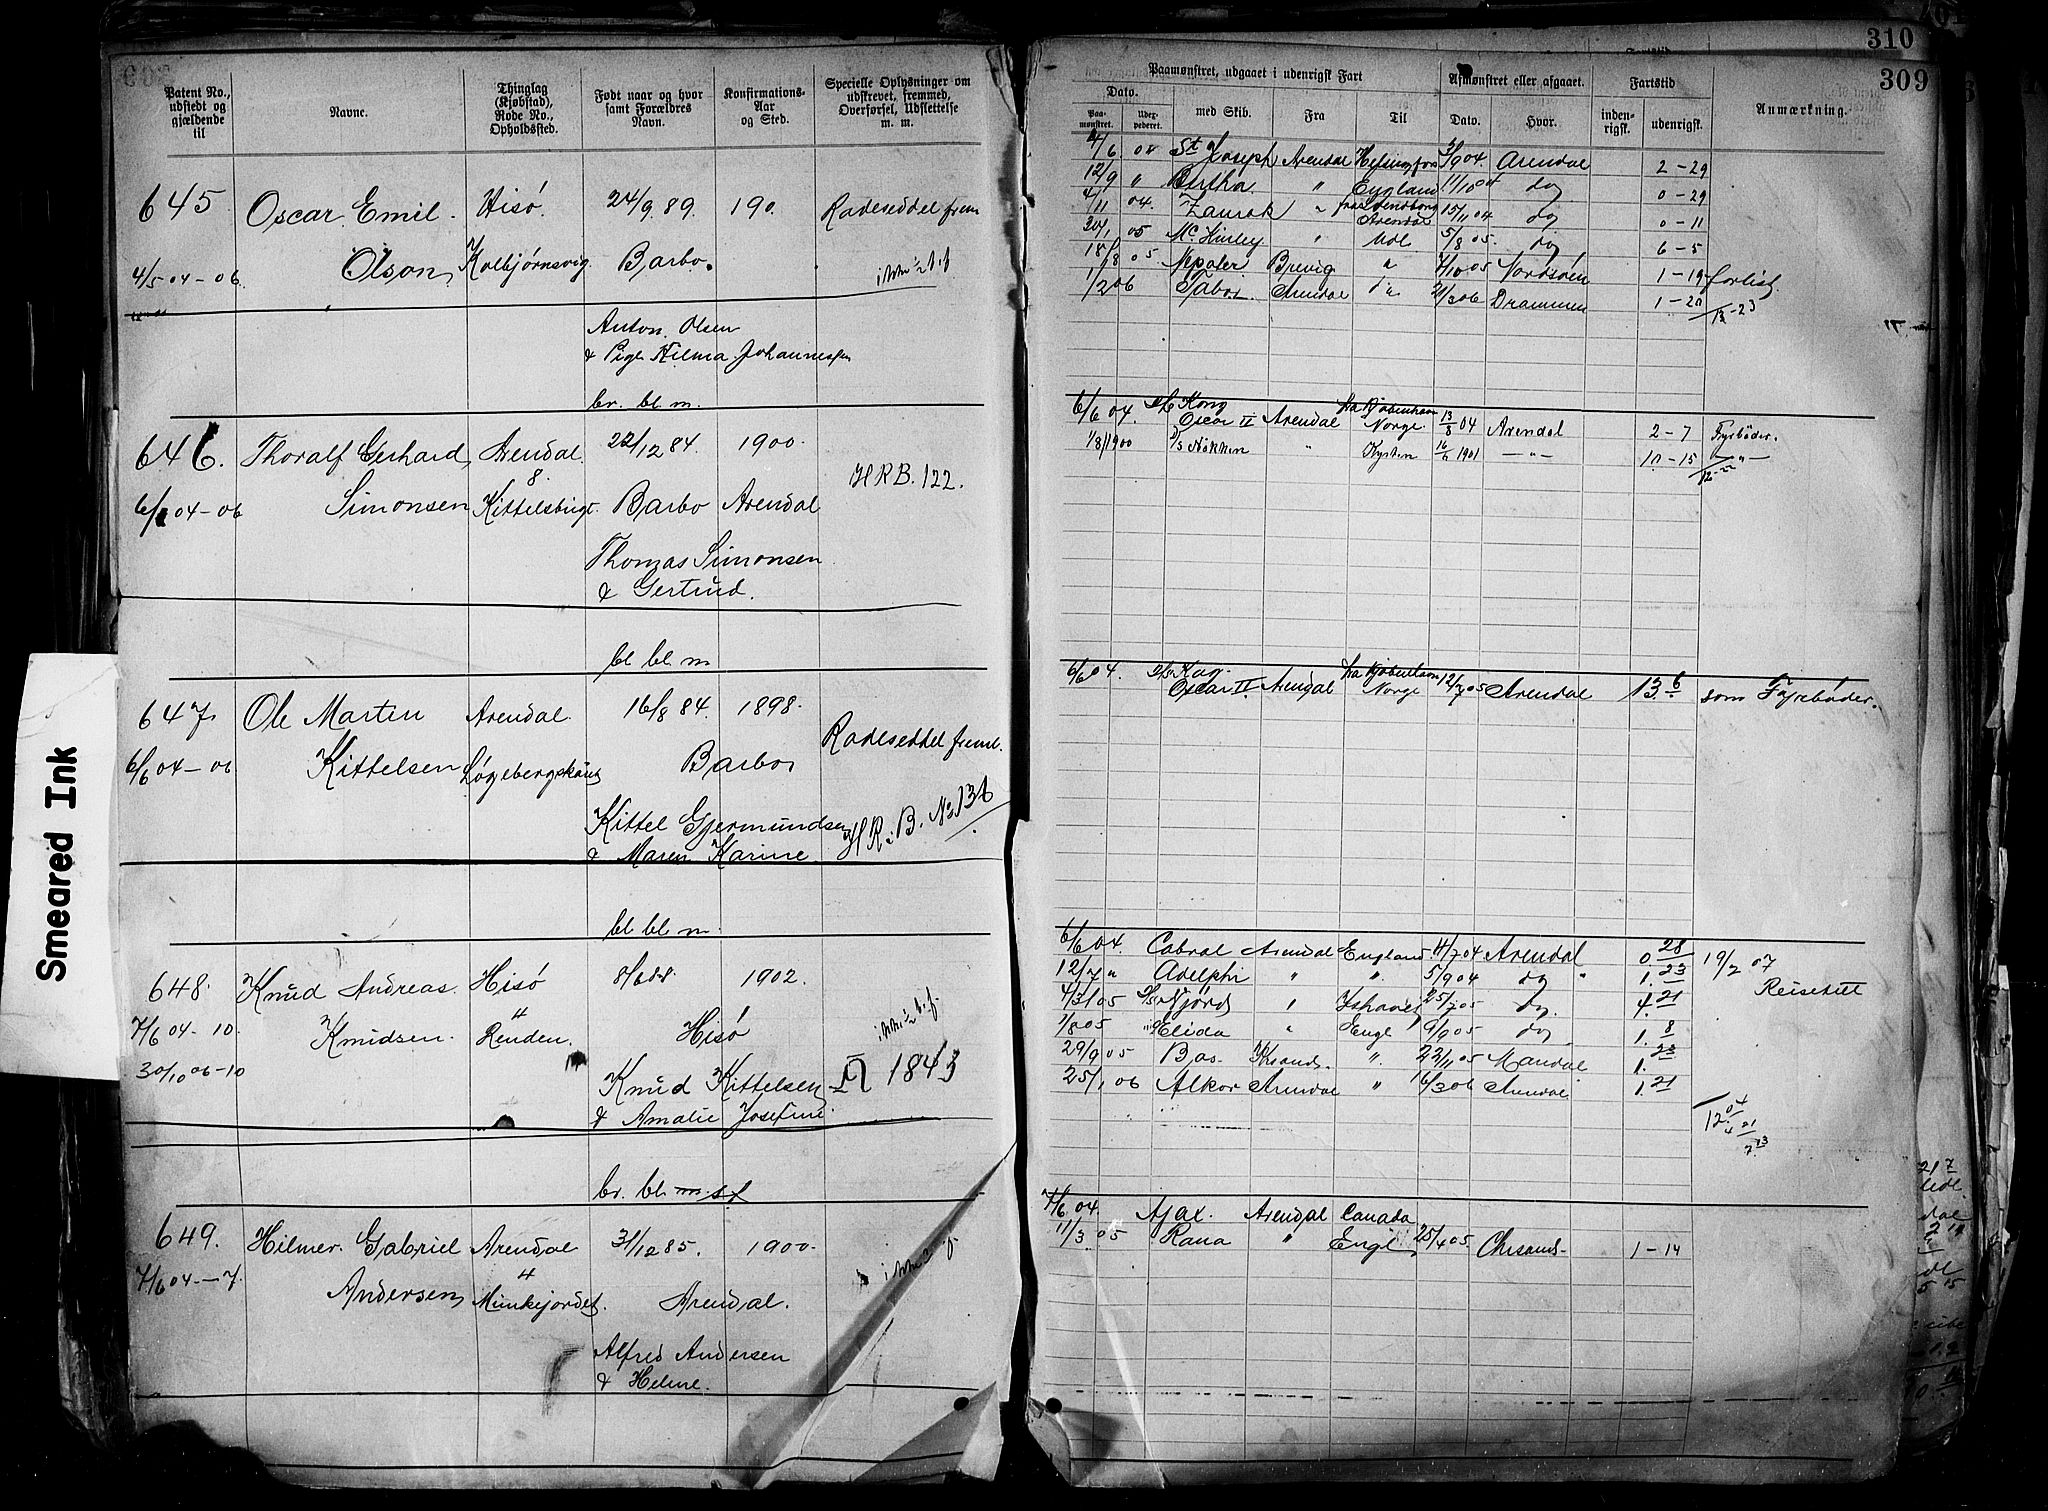 310
309
Patent No., udstedt og gjældende til
Navne.
Thinglag (Kjøbstad), Rode No., Opholdssted.
Født naar og hvor samt Forældres Navn.
Konfirmations-Aar og Sted.
Specielle Oplysninger om udskrevet, fremmed, Overførsel, Udslettelse m. m.
Paamønstret, udgaaet i udenrigsk Fart
Afmønstret eller afgaaet.
Fartstid
Dato.
Paa-mønstret.
Udex-pederet.
med Skib.
Fra
Til
Dato.
Hvor.
inden-rigsk.
udenrigsk.
Anmærkning.
645. Oscar Emil Hisö. 24/9 89. 190. Rodeseddel frem
4/5 04-06 Olson, Kolbjørnsvig. Barbo.
Anton Olsen
& Pige Hilma Johannesen
br. bl m.
St Joseph Arendal Helsingfors 3/9 04. Arendal 2-29
12/9 " Bertha " England 11/10 04 do 0-29
4/11 04. " Arendal 15/11 04 do 0-11
30/1 05 Mc Kinley " Udl 5/8 05. do 6-5
18/8 05 Brevig " Nordsøen 1-19 forlist.
1/2 06 Tabor Arendal do 21/3 06 Drammen 1-20
13-23
646. Thoralf Gerhard Arendal. 22/12 84 1900.
8.
04-06 Simonsen Kittelsbugt. Barbo Arendal
HRB. 122.
Thomas Simonsen
& Gertrud.
bl bl m
6/6 04. Kong Oscar II Arendal fra Kjøbenhavn Norge. 13/8 04 Arendal 2-7 Fyrbøder.
1/8 1900 D/S Nøkken " Kysten 1901 -"- 10-15 -"-
12-22
647. Ole Martin Arendal. 16/8 84. 1898.
6/6 04-06 Kittelsen Barbo
Rodeseddel freml.
Kittel Gjermundsen
& Maren Karine.
HR: B. No 136
bl bl m.
6/6 04. Kong Oscar II Arendal fra Kjøbenhavn Norge 12/7 05 Arendal 13. 6 som Fyrbøder.
648. Knud Andreas Hisö 8/6 88 1902.
4
7/6 04-10. Knudsen. Renden. Hisö
30/10 06-10
Knud Kittelsen 1843
& Amalie Josefine
br. bl. m
6/6 04. Cabral Arendal England 11/7 04 Arendal 0. 28 19/2 07
12/7 " Adelphi " " 5/9 04 do " 1. 23 Reisetill
4/3 05 Fjörd " Ishavet 25/7 05 do. 4. 21
1/8 05 Elida " Engl 9/9 05 do 1. 8
29/9 05 Bas Krsand. " 22/11 05 Mandal 1. 23
25/1 06 Alkor Arendal " 16/3 06 Arendal 1. 21
12. 04
4 21
7. 13
649. Hilmer Gabriel Arendal 31/12 85. 1900.
4
7/6 04-7. Andersen, Munkejordet. Arendal.
Alfred Andersen
& Helene.
7/6 04. Ajax. Arendal Canada
11/3 05 Rana " Engl 25/4 05. Chrsand- 1-14
Smeared Ink